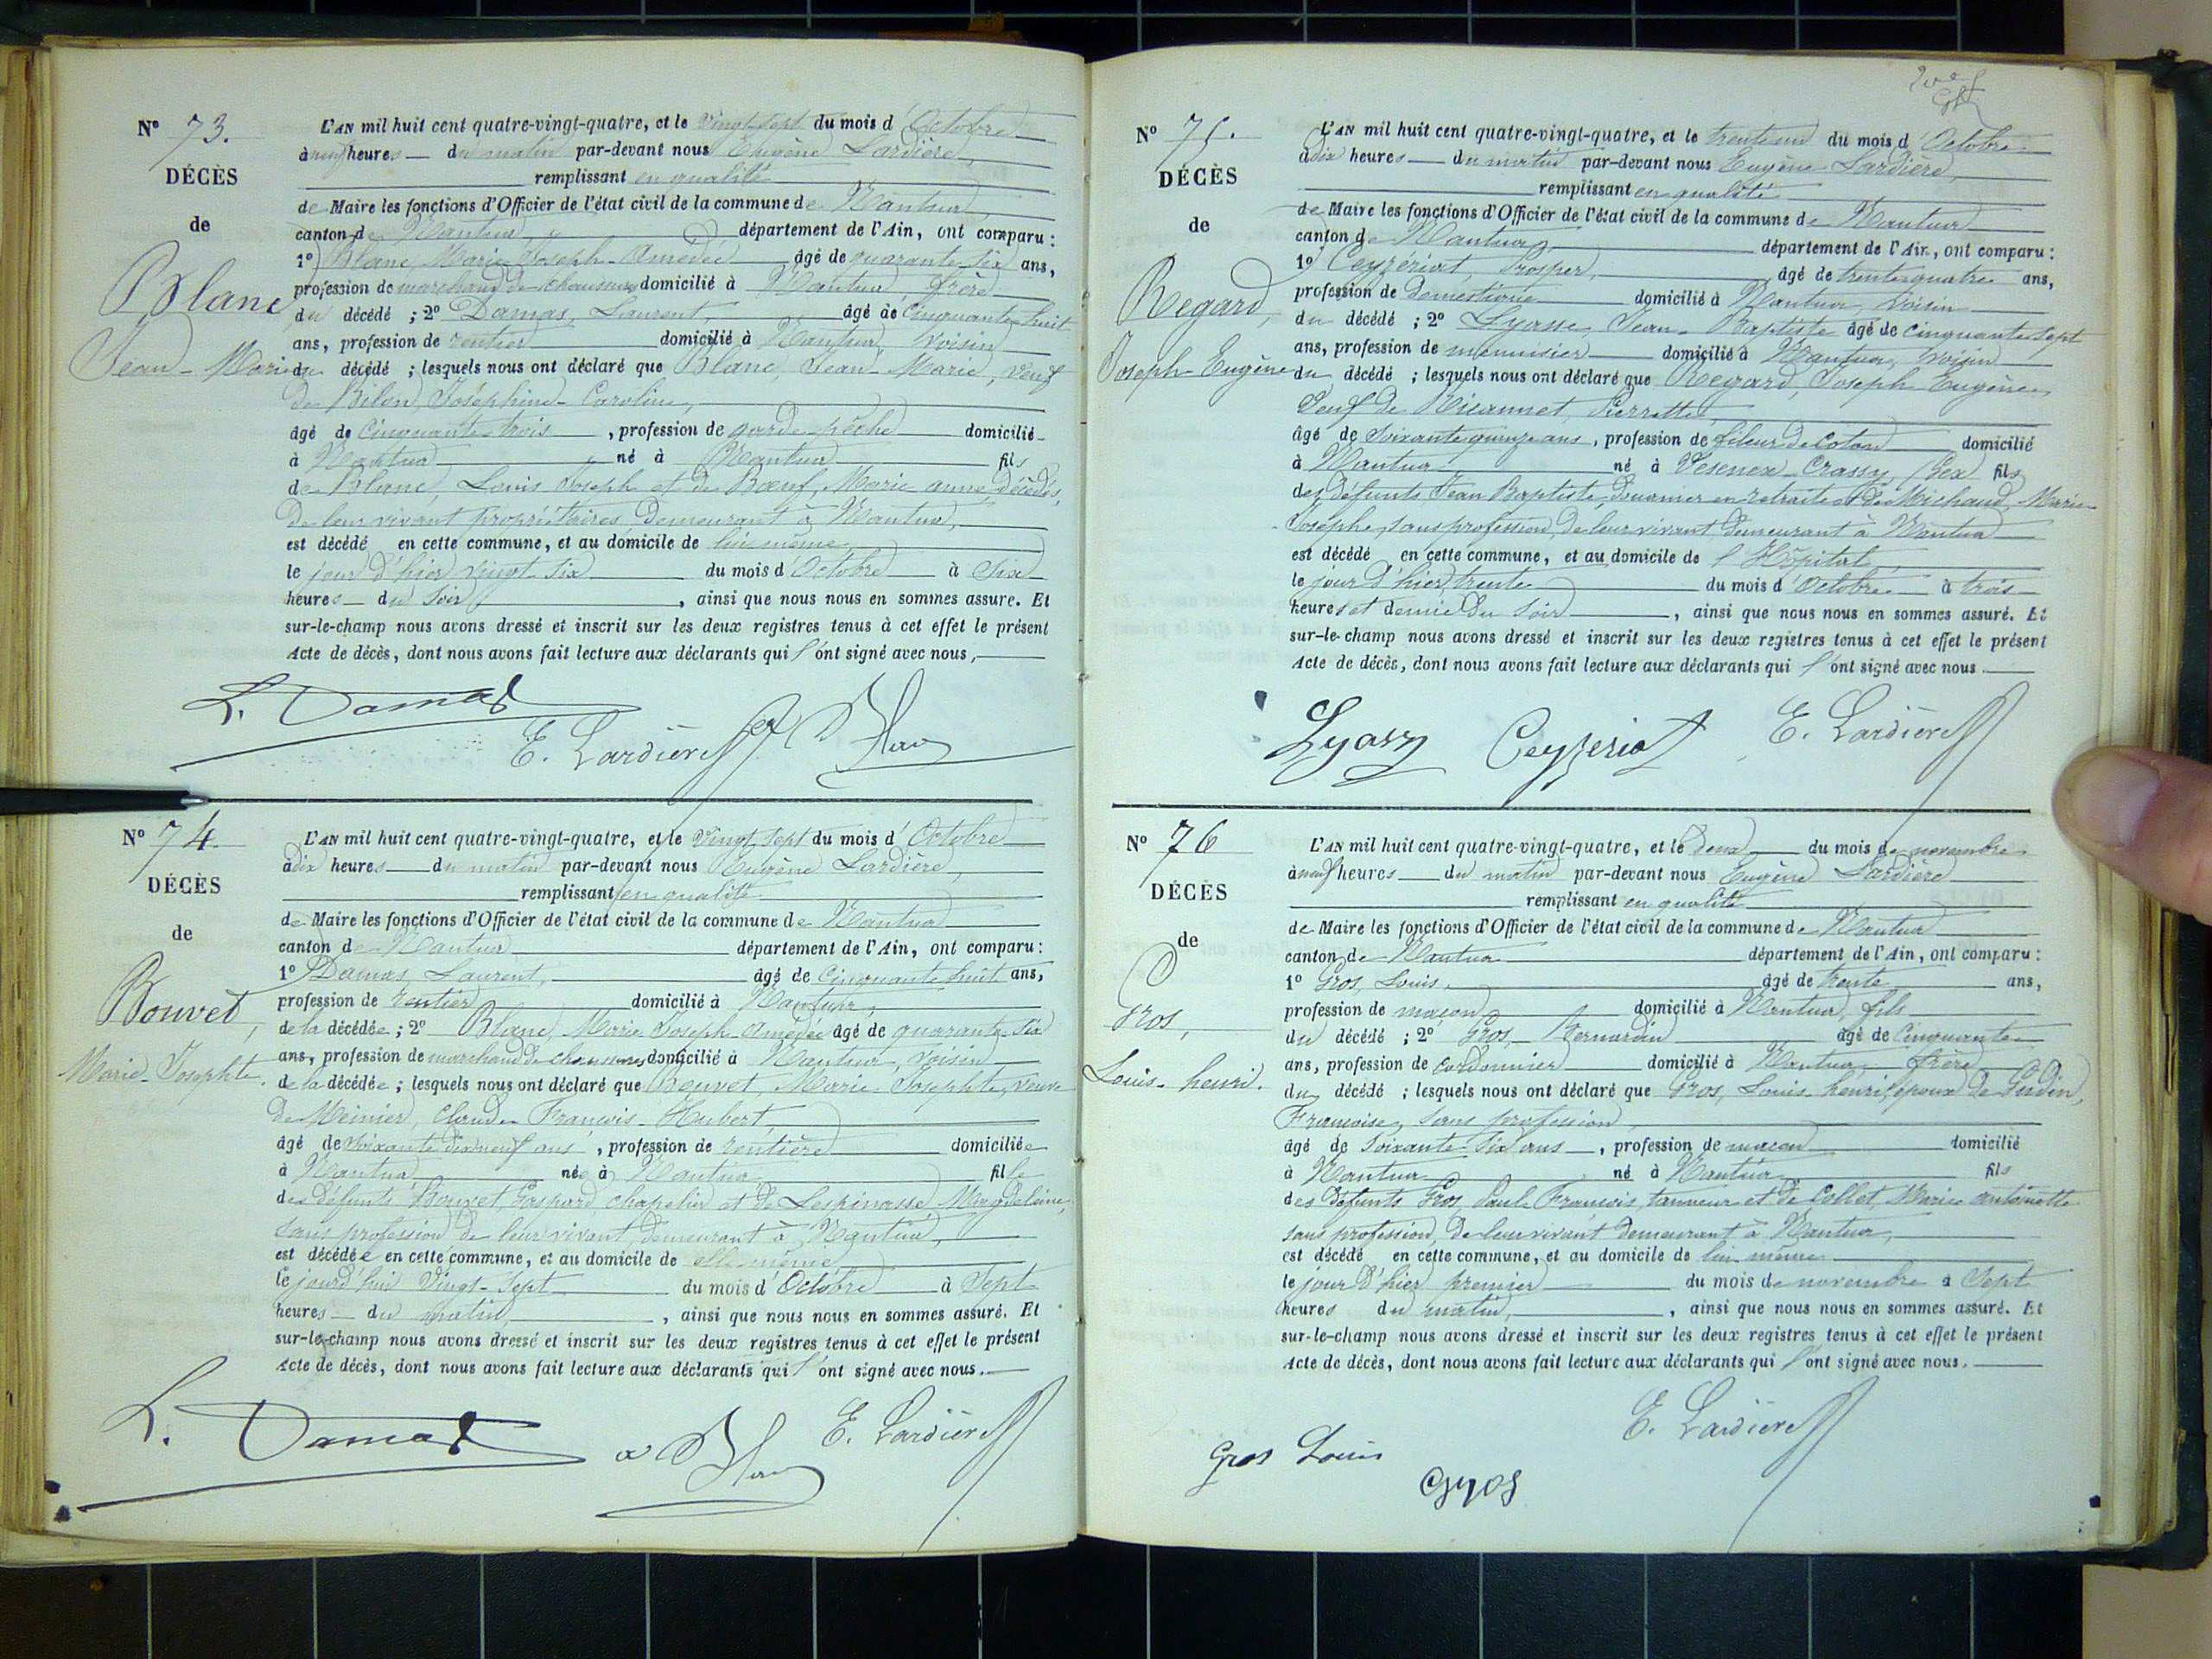 N° 73.
DÉCÈS
de
Blanc
Jean-Marie
L'AN mil huit cent quatre-vingt-quatre, et le vingt sept du mois d'Octobre
à neuf heures du matin par-devant nous Eugène Lardière,
remplissant en qualité
de Maire les fonctions d'Officier de l'état civil de la commune de Nantua
canton de Nantua, département de l'Ain, ont comparu :
1° Blanc, Marie Joseph Amédée âgé de quarante six ans,
profession de marchand de chaussures domicilié à Nantua frère
du décédé ; 2° Damas, Laurent, âgé de cinquante huit
ans, profession de rentier domicilié à Nantua voisin
du décédé ; lesquels nous ont déclaré que Blanc Jean-Marie, veuf
de Joséphine-Caroline,
âgé de cinquante trois, profession de garde pêche domicilié
à Nantua né à Nantua fils
de Blanc, Louis Joseph et de Bœuf, Marie anne, décédés,
de leur vivant propriétaires demeurant à Nantua,
est décédé en cette commune, et au domicile de lui même
le jour d'hier vingt six du mois d'Octobre à six
heures du soir, ainsi que nous nous en sommes assuré. Et
sur-le-champ nous avons dressé et inscrit sur les deux registres tenus à cet effet le présent
Acte de décès, dont nous avons fait lecture aux déclarants qui l'ont signé avec nous,
L. Damas
E. Lardière
A Blanc
N° 74.
DÉCÈS
de
Bouvet,
Marie-Josephte.
L'AN mil huit cent quatre-vingt-quatre, et le vingt sept du mois d'Octobre
à dix heures du matin par-devant nous Eugène Lardière,
remplissant en qualité
de Maire les fonctions d'Officier de l'état civil de la commune de Nantua
canton de Nantua département de l'Ain, ont comparu :
1° Damas, Laurent, âgé de cinquante huit ans,
profession de rentier domicilié à Nantua,
de la décédée ; 2° Blanc, Marie Joseph Amédée âgé de quarante six
ans, profession de marchand de chaussures, domicilié à Nantua, voisin
de la décédée ; lesquels nous ont déclaré que Bouvet, Marie-Josephte, veuve
de Meinier, Claude François-Hubert,
âgé de soixante dix neuf ans, profession de rentière domiciliée
à Nantua née à Nantua fille
des défunts Bouvet, Gaspard, chapelier et de Lespinasse Magdeleine,
sans profession de leur vivant, demeurant à Nantua,
est décédée en cette commune, et au domicile de elle même
le jourd'hui vingt-sept du mois d'Octobre à sept
heures du matin, ainsi que nous nous en sommes assuré. Et
sur-le-champ nous avons dressé et inscrit sur les deux registres tenus à cet effet le présent
Acte de décès, dont nous avons fait lecture aux déclarants qui l'ont signé avec nous.
L. Damas
A Blanc
E. Lardière
N° 75.
DÉCÈS
de
Regard,
Joseph-Eugène
L'AN mil huit cent quatre-vingt-quatre, et le trente un du mois d'Octobre
à dix heures du matin par-devant nous Eugène Lardière,
remplissant en qualité
de Maire les fonctions d'Officier de l'état civil de la commune de Nantua
canton de Nantua département de l'Ain, ont comparu :
1° Ceyzériat, Prosper, âgé de trente quatre ans,
profession de domestique domicilié à Nantua, voisin
du décédé ; 2° Lyasse, Jean-Baptiste âgé de cinquante sept
ans, profession de menuisier domicilié à Nantua, voisin
du décédé ; lesquels nous ont déclaré que Regard, Joseph Eugène
veuf de Pierrette
âgé de soixante quinze ans, profession de fileur de coton domicilié
à Nantua né à Vesenex Crassy (Gex) fils
des défunts Jean Baptiste, douanier en retraite et de Michaud, Marie
Josephe, sans profession, de leur vivant demeurant à Nantua
est décédé en cette commune, et au domicile de l'Hôpital
le jour d'hier, trente du mois d'Octobre à trois
heures et demie du soir, ainsi que nous nous en sommes assuré. Et
sur-le-champ nous avons dressé et inscrit sur les deux registres tenus à cet effet le présent
Acte de décès, dont nous avons fait lecture aux déclarants qui l'ont signé avec nous
Lyasse
Ceyzeriat
E. Lardière
N° 76
DÉCÈS
de
Gros,
Louis-henri.
L'AN mil huit cent quatre-vingt-quatre, et le deux du mois de novembre
à neuf heures du matin par-devant nous Eugène Lardière
remplissant en qualité
de Maire les fonctions d'Officier de l'état civil de la commune de Nantua
canton de Nantua département de l'Ain, ont comparu :
1° Gros, Louis, âgé de trente ans,
profession de maçon domicilié à Nantua, fils
du décédé ; 2° Gros, Bernardin âgé de cinquante
ans, profession de cordonnier domicilié à Nantua frère
du décédé ; lesquels nous ont déclaré que Gros, Louis-henri, époux de Gudin,
Françoise, sans profession,
âgé de soixante six ans, profession de maçon domicilié
à Nantua né à Nantua fils
des défunts Gros, Paul François, tanneur et de Collet, Marie antoinette
sans profession, de leur vivant demeurant à Nantua,
est décédé en cette commune, et au domicile de lui même
le jour d'hier, premier du mois de novembre à sept
heures du matin, ainsi que nous nous en sommes assuré. Et
sur-le-champ nous avons dressé et inscrit sur les deux registres tenus à cet effet le présent
Acte de décès, dont nous avons fait lecture aux déclarants qui l'ont signé avec nous.
E. Lardière
Gros Louis
Gros